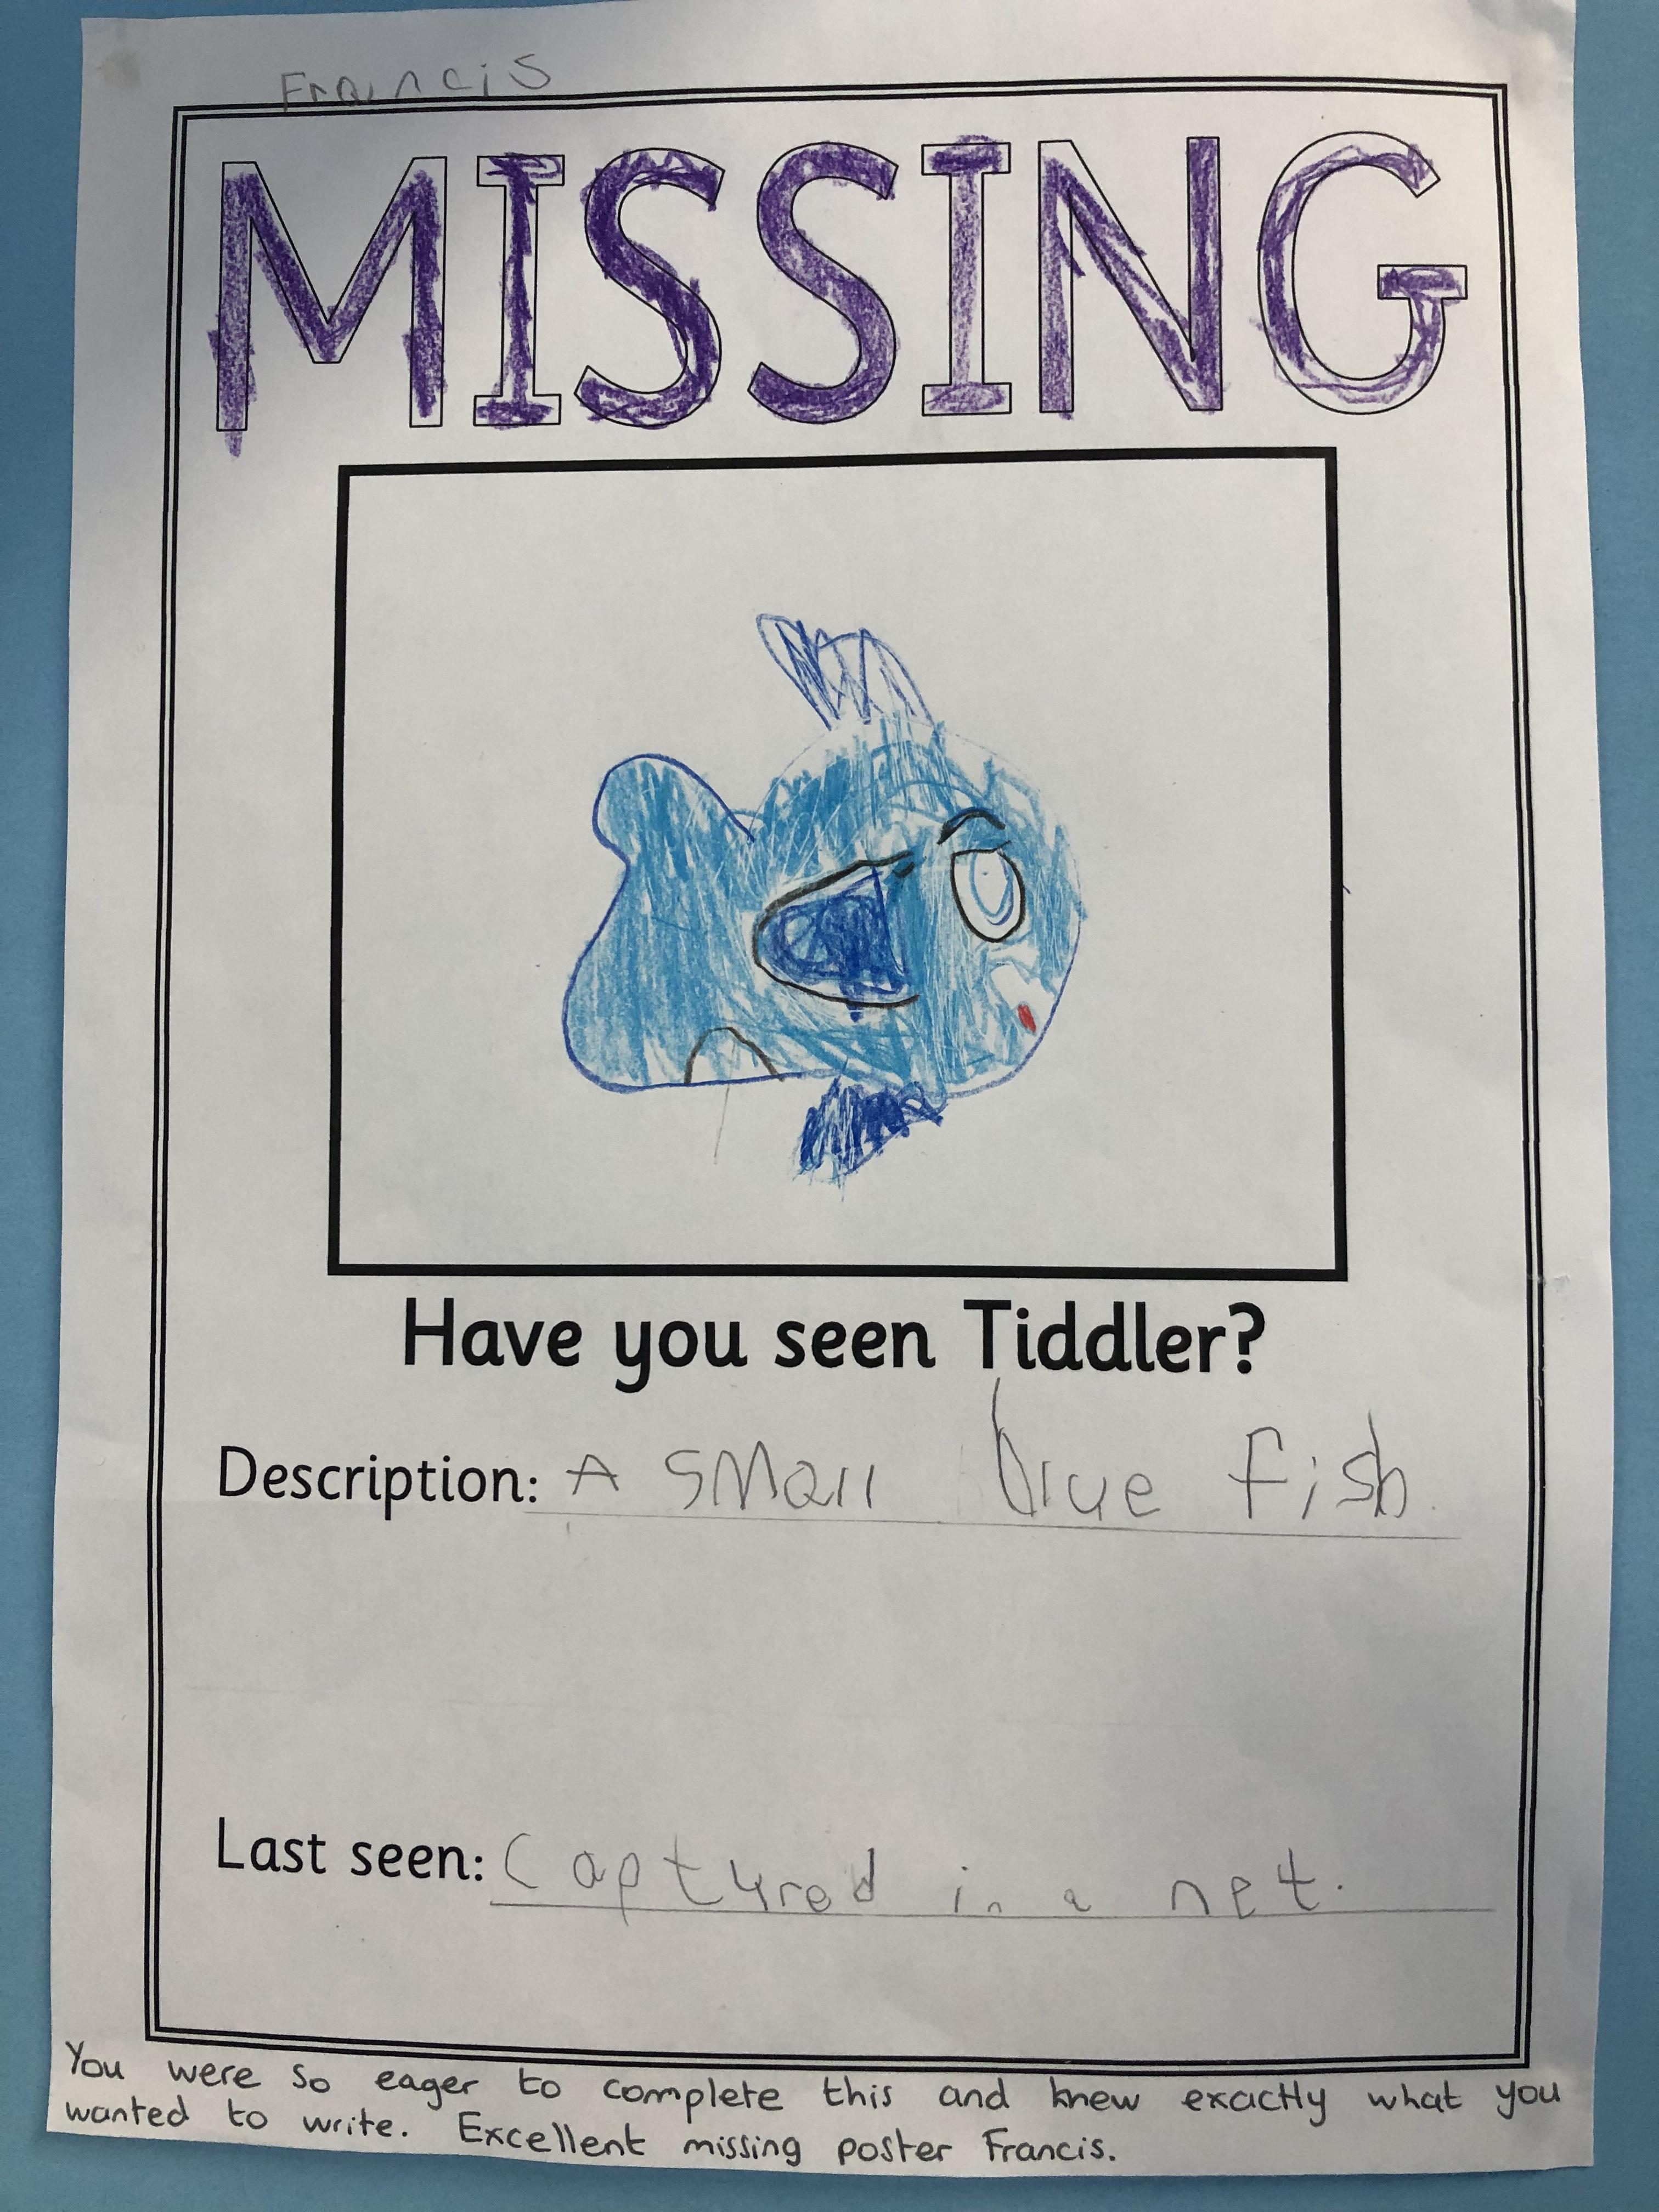 Francis
MISSING
Have you seen Tiddler?
Description: A small blue fish.
Last seen: Captured in a net.
You were so eager to complete this and knew exactly what you
wanted to write. Excellent missing poster Francis.